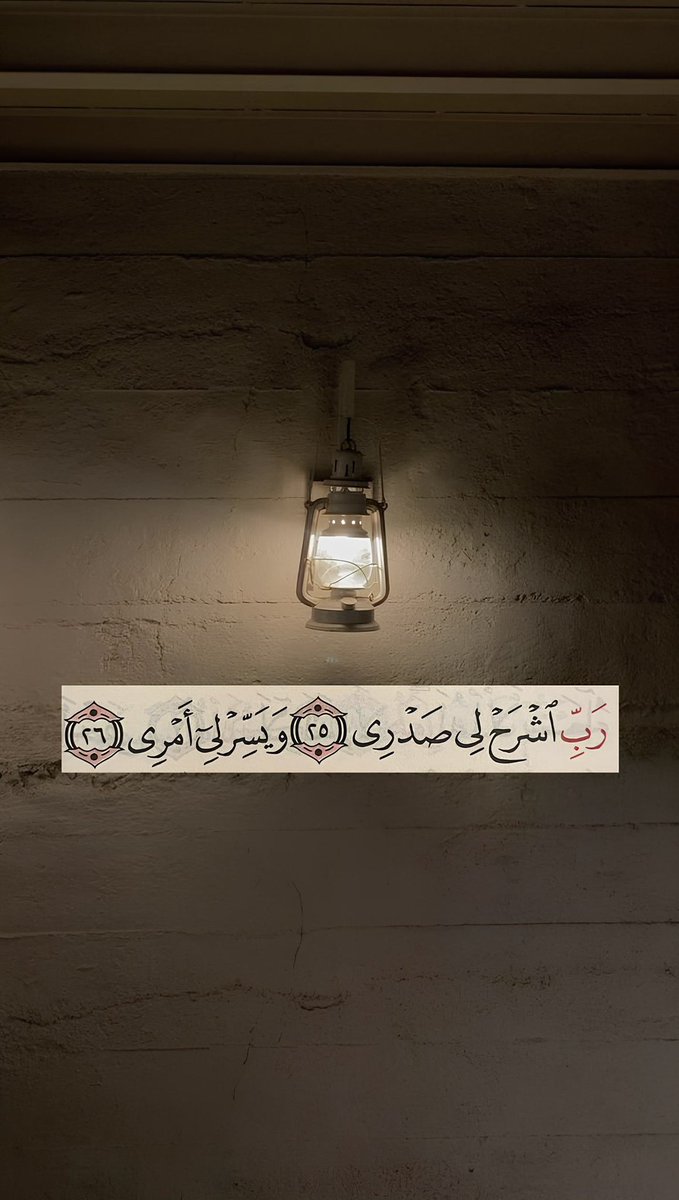 رَبِّ ٱشْرَحْ لِى صَدْرِى ﴿٢٥﴾ وَيَسِّرْ لِىٓ أَمْرِى ﴿٢٦﴾